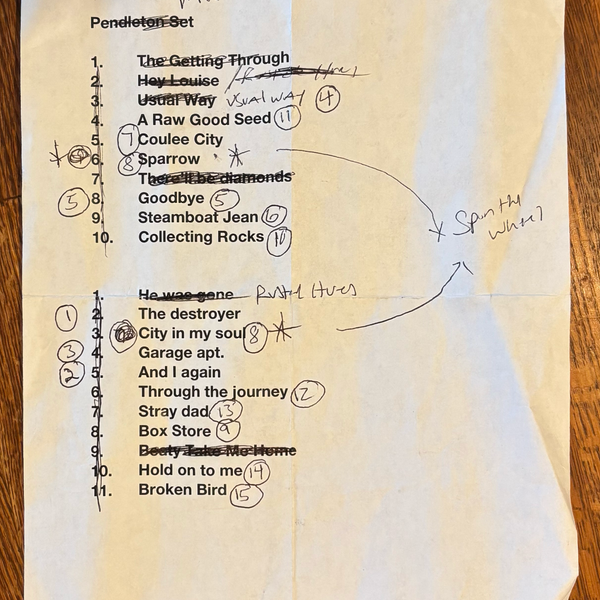 Pendleton Set
1. The Getting Through
2. Hey Louise
3. Usual Way Usual way 4
4. A Raw Good Seed 11
5. 7 Coulee City
6. 8 Sparrow
7. There'll be diamonds
5 8. Goodbye 5
9. Steamboat Jean 6
10. Collecting Rocks 10
Spin the wheel
1. He was gone
1 2. The destroyer
3. City in my soul 8
3 4. Garage apt.
2 5. And I again
6. Through the journey 12
7. Stray dad 13
8. Box Store 9
9. Booty Take Me Home
10. Hold on to me 14
11. Broken Bird 15